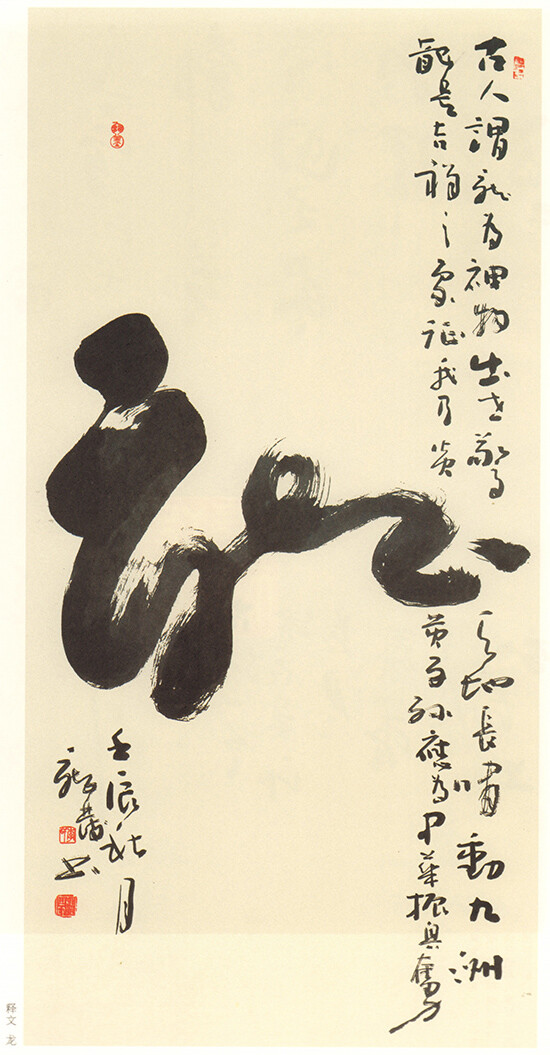 古人謂龍為神物出世驚天地長嘯動九洲
龍是吉祥之象征我乃炎黄子孫應為中華振興奮
龍
壬辰秋月
书
释文 龙